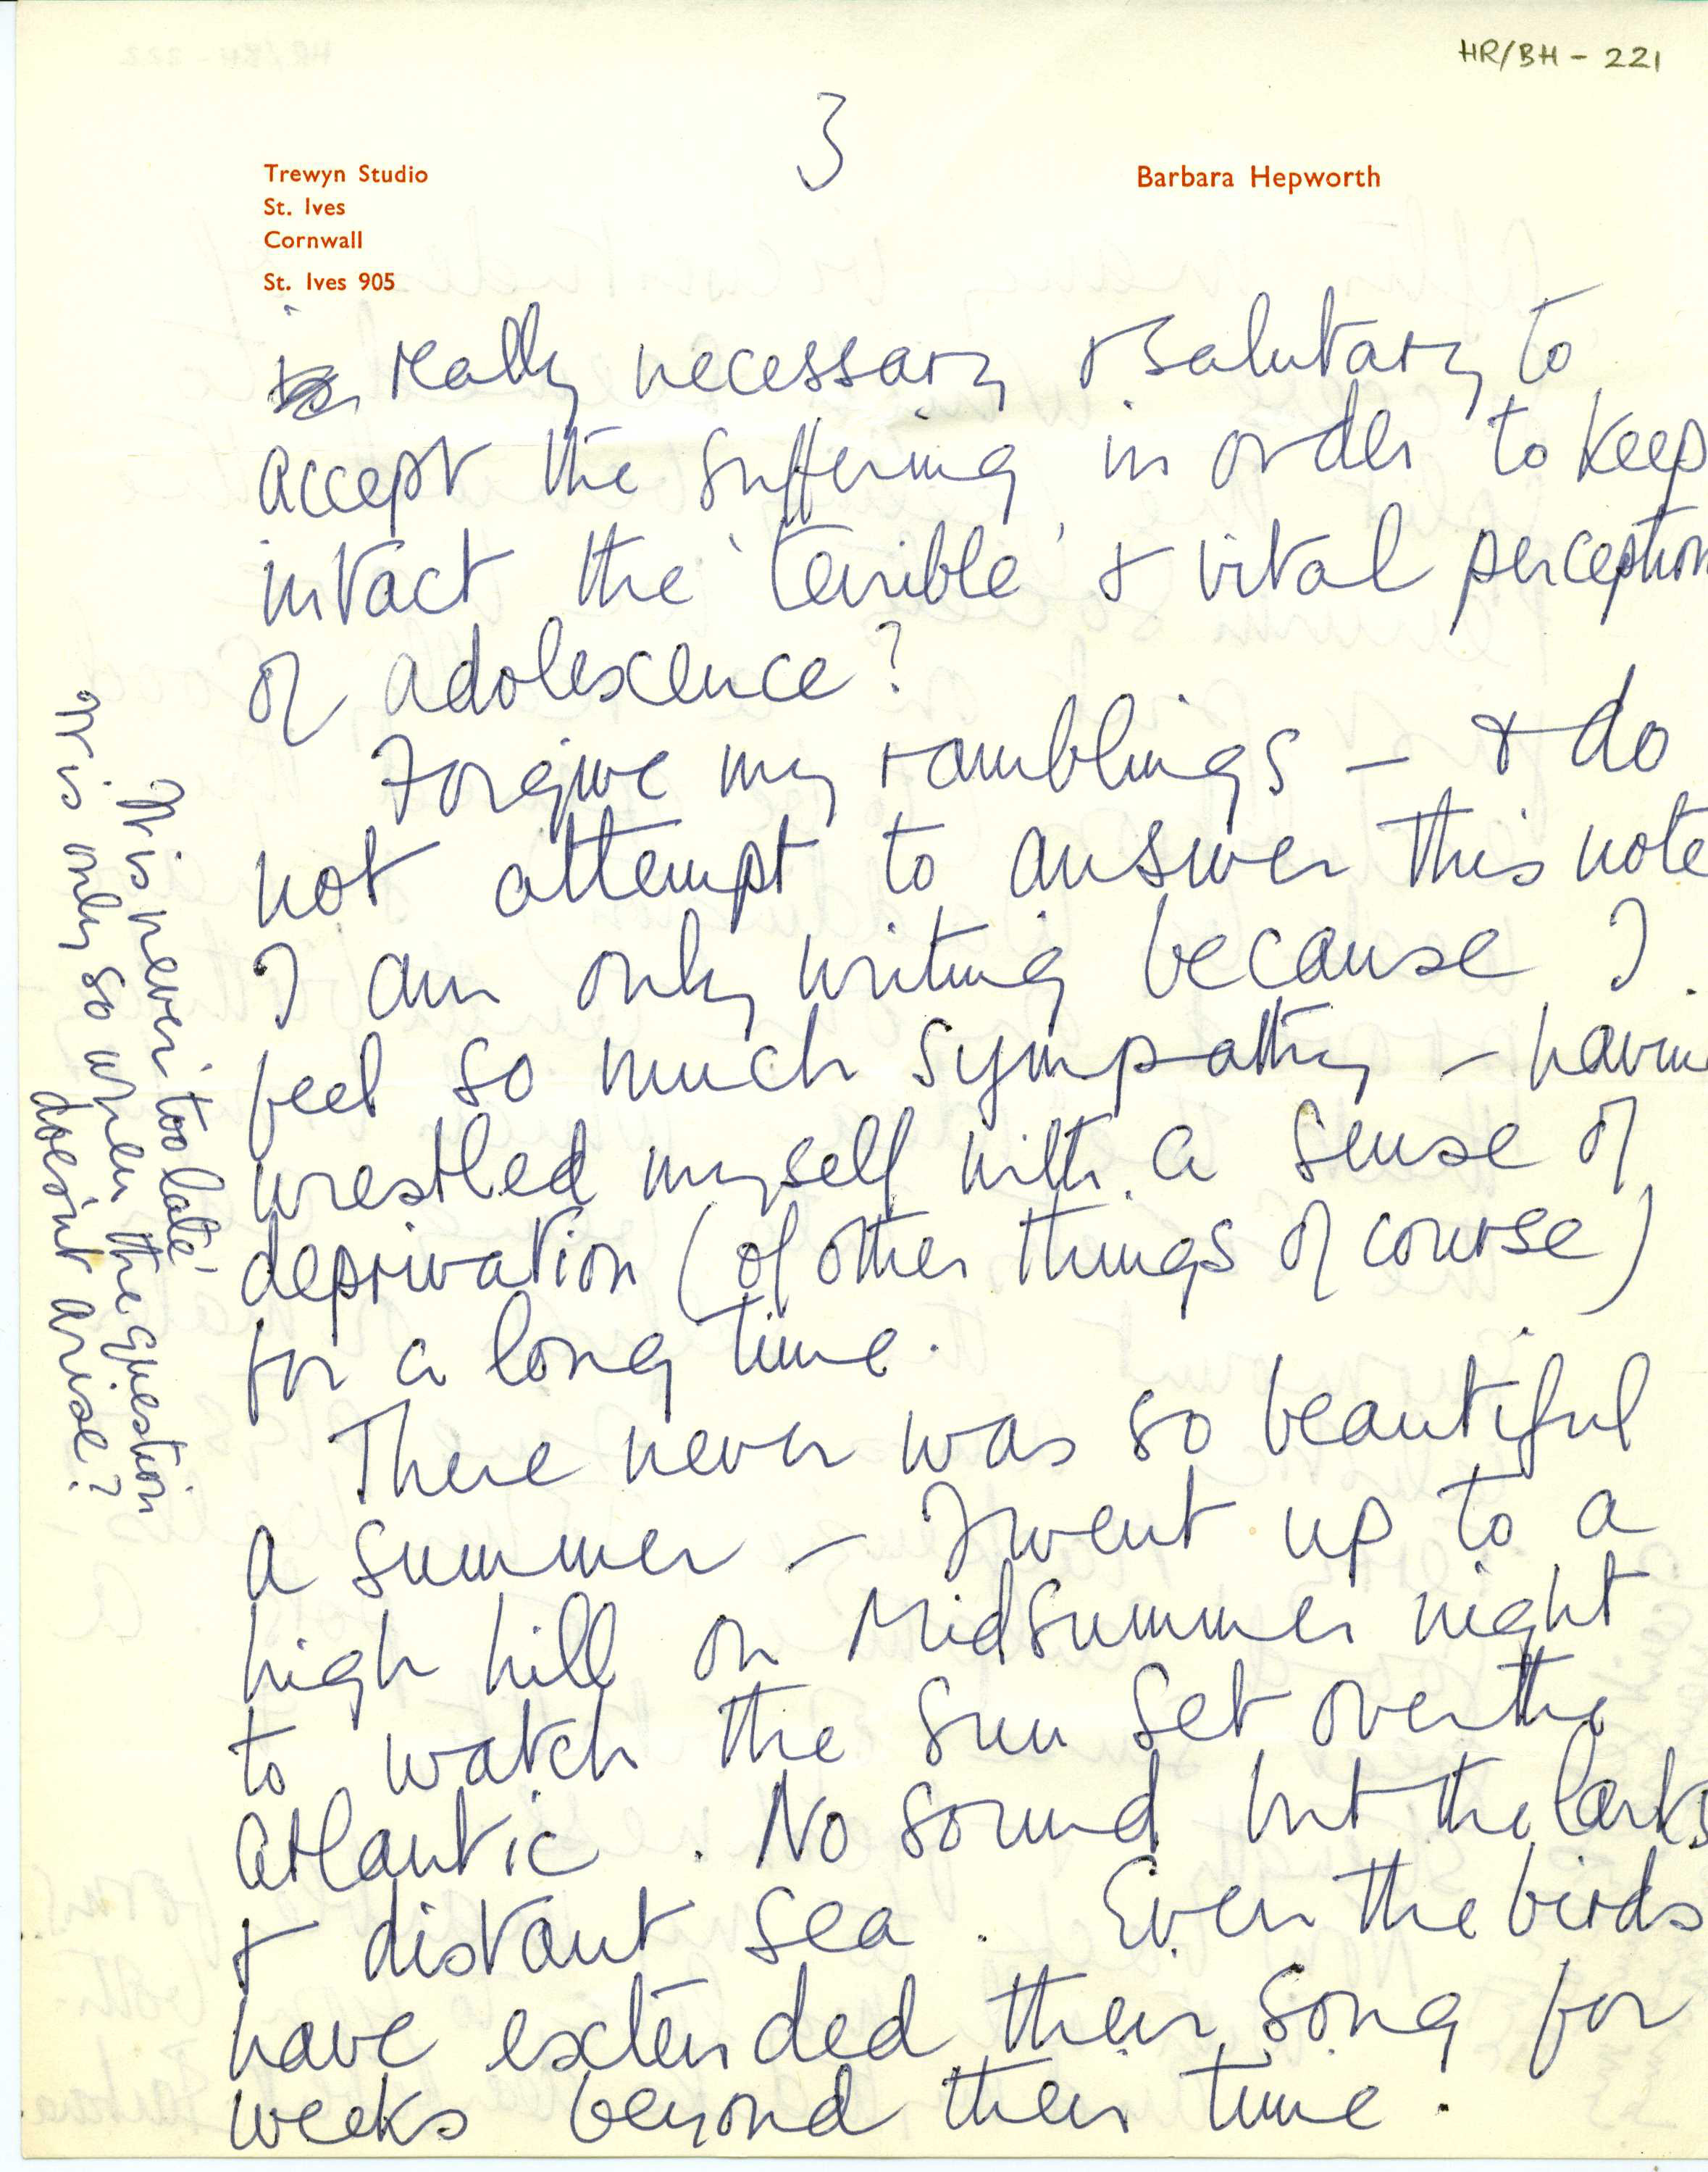 HR/BH - 221
3
Trewyn Studio
St. Ives
Cornwall
St. Ives 905
Barbara Hepworth
really necessary & salutary to
accept the suffering in order to keep
intact the 'terrible' & vital perception
of adolescence?
Forgive my ramblings – & do
not attempt to answer this note
I am only writing because I
feel so much sympathy – having
wrestled myself with a sense of
deprivation (of other things of course)
for a long time.
There never was so beautiful
a summer – I went up to a
high hill on Midsummer night
to watch the sun set over the
Atlantic. No sound but the larks
& distant sea. Even the birds
have extended their song for
weeks beyond their time.
It is never 'too late'
It is only so when the question
doesn't arise?